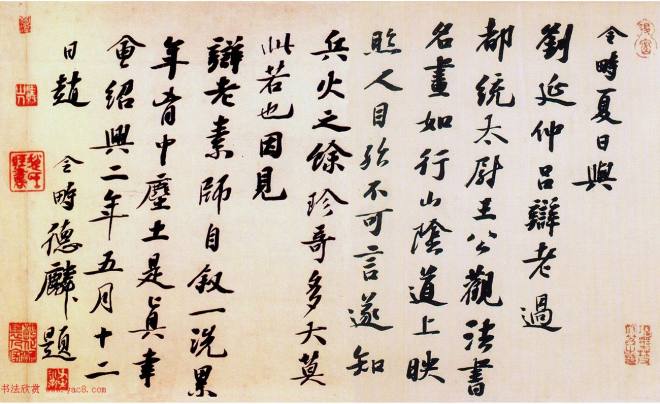 令畤夏日與
劉延仲吕辯老過
都統太尉王公觀法書
名畫如行山陰道上映
照人目殆不可言遂知
兵火之餘珍哥多大莫
此若也因見
辯老素師自叙一洗累
年胷中塵土是真幸
會紹興二年五月十二
日趙令畤德麟題
书法欣赏 www.yac8.com